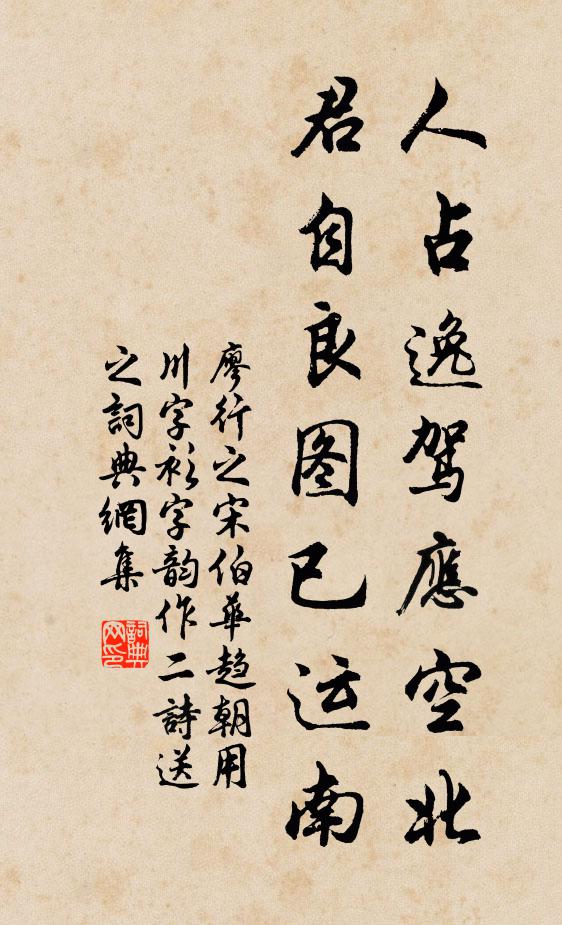 人占逸驾應空北
君自良图已运南
廖行之宋伯華趋朝用
川字衫字韵作二詩送
之詞典網集
詞典网印